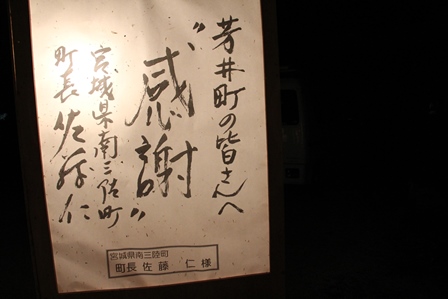 芳井町の皆さんへ
"感謝"
宮城県南三陸町
町長 佐藤仁
宮城県南三陸町
町長 佐藤 仁 様